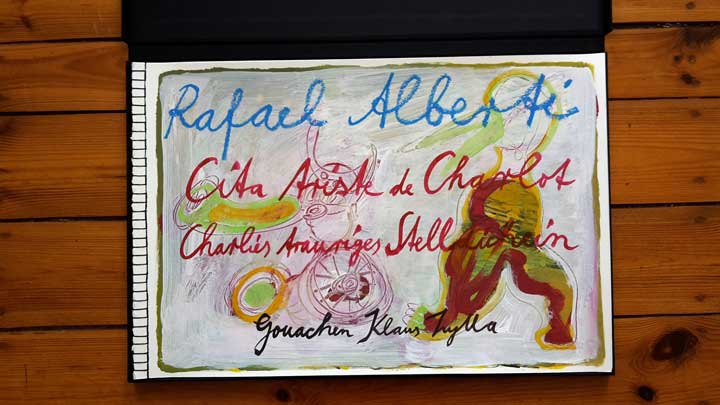 Rafael Alberti
Cita triste de Charlot
Charlies trauriges Stelldichein
Gouachen Klaus Zylla